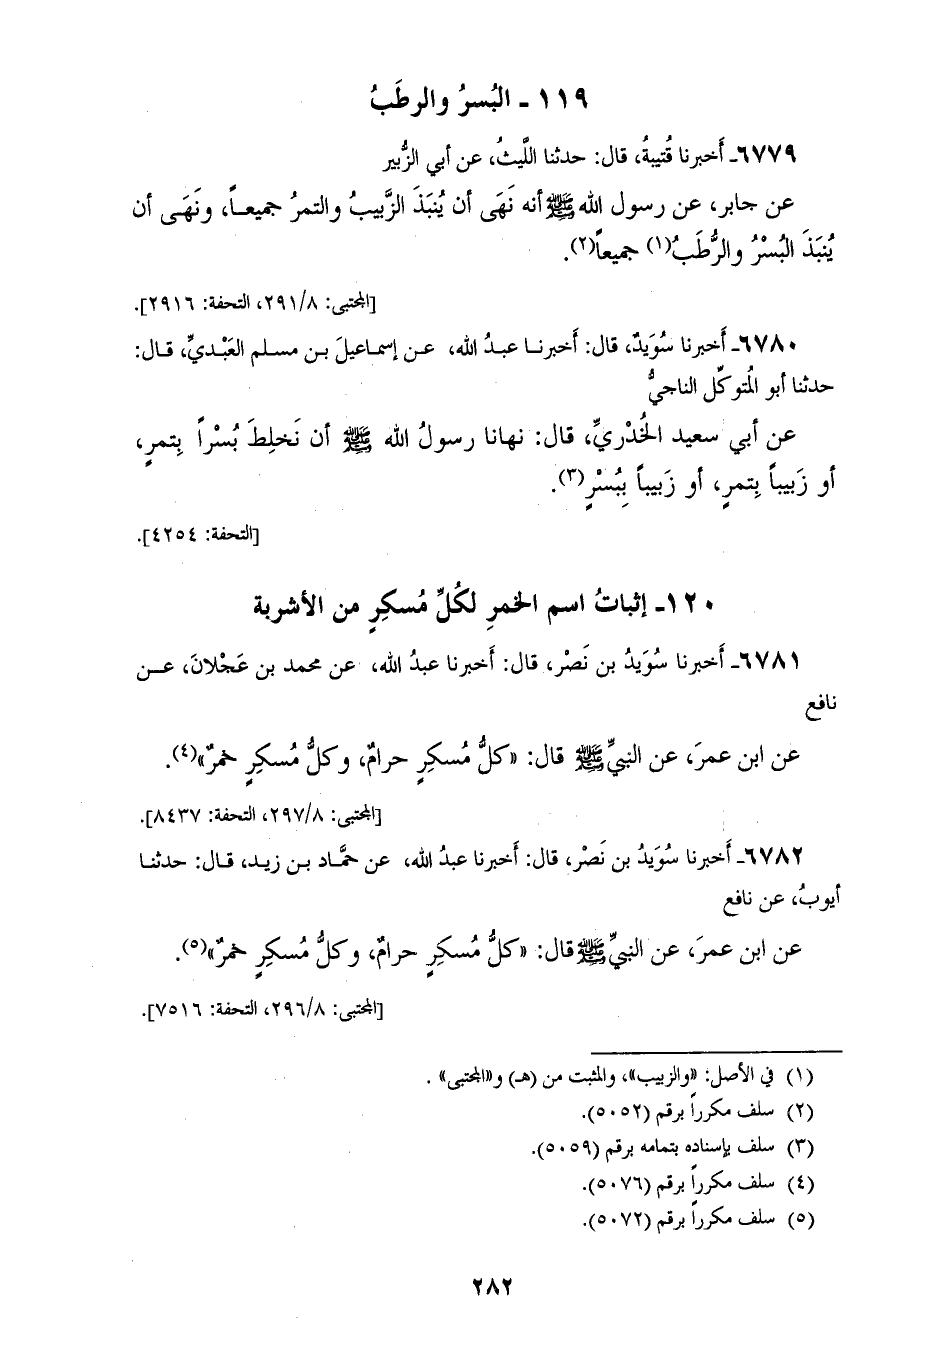 ١١٩ـ البُسرُ والرطَبُ
٦٧٧٩ـ أَخبرنا قُتيبةُ، قال: حدثنا اللَّيثُ، عن أبي الزُّبير
عن جابر، عن رسول الله ﷺ أنه نَهَى أن يُنبَذَ الزَّبيبُ والتمرُ جميعاً، ونَهَى أن
يُنبَذَ البُسْرُ والرُّطَبُ(١) جميعاً(٢).
[المجتبى: ٢٩١/٨، التحفة: ٢٩١٦].
٦٧٨٠ـ أَخبرنا سُوَيدٌ، قال: أَخبرنا عبدُ الله، عن إسماعيلَ بن مسلم العَبْديِّ، قال:
حدثنا أبو المُتوكِّل الناجيُّ
عن أبي سعيد الخُدْريِّ، قال: نهانا رسولُ الله ﷺ أن نَخلِطَ بُسْراً بِتمرٍ،
أو زَبيباً بِتمرٍ، أو زَبيباً بِبُسْرٍ(٣).
[التحفة: ٤٢٥٤].
١٢٠ـ إثباتُ اسم الخمرِ لكُلِّ مُسكِرٍ من الأشربة
٦٧٨١ـ أَخبرنا سُوَيدُ بن نَصْر، قال: أَخبرنا عبدُ الله، عن محمد بن عَجْلانَ، عن
نافع
عن ابن عمرَ، عن النبيِّ ﷺ قال: «كلُّ مُسكرٍ حرامٌ، وكلُّ مُسكرٍ خمرٌ»(٤).
[المجتبى: ٢٩٧/٨، التحفة: ٨٤٣٧].
٦٧٨٢ـ أَخبرنا سُوَيدُ بن نَصْر، قال: أَخبرنا عبدُ الله، عن حمَّاد بن زيد، قال: حدثنا
أيوبُ، عن نافع
عن ابن عمرَ، عن النبيِّ ﷺ قال: «كلُّ مُسكرٍ حرامٌ، وكلُّ مُسكرٍ خمرٌ»(٥).
[المجتبى: ٢٩٦/٨، التحفة: ٧٥١٦].
(١) في الأصل: «والزبيب»، والمثبت من (هـ) و«المجتبى».
(٢) سلف مكرراً برقم (٥٠٥٢).
(٣) سلف بإسناده بتمامه برقم (٥٠٥٩).
(٤) سلف مكرراً برقم (٥٠٧٦).
(٥) سلف مكرراً برقم (٥٠٧٢).
٢٨٢